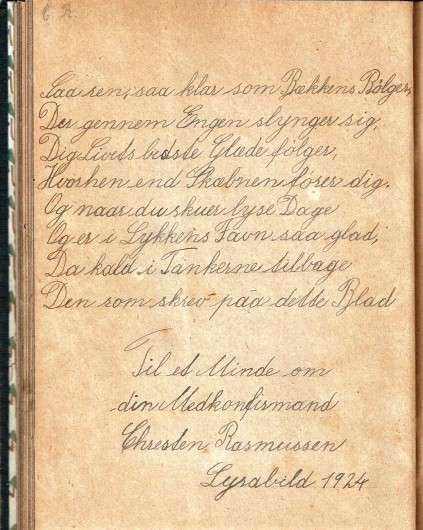 C. R.
Saa ren, saa klar som Bækkens Bölger,
Der gennem Engen slynger sig,
Dig Livets bedste Glæde fölger,
Hvorhen end Skæbnen förer dig.
Og naar du skuer lyse Dage
Og er i Lykkens Favn saa glad,
Da kald i Tankerne tilbage
Den som skrev paa dette Blad
Til et Minde om
din Medkonfirmand
Chresten Rasmussen
Lysabild 1924